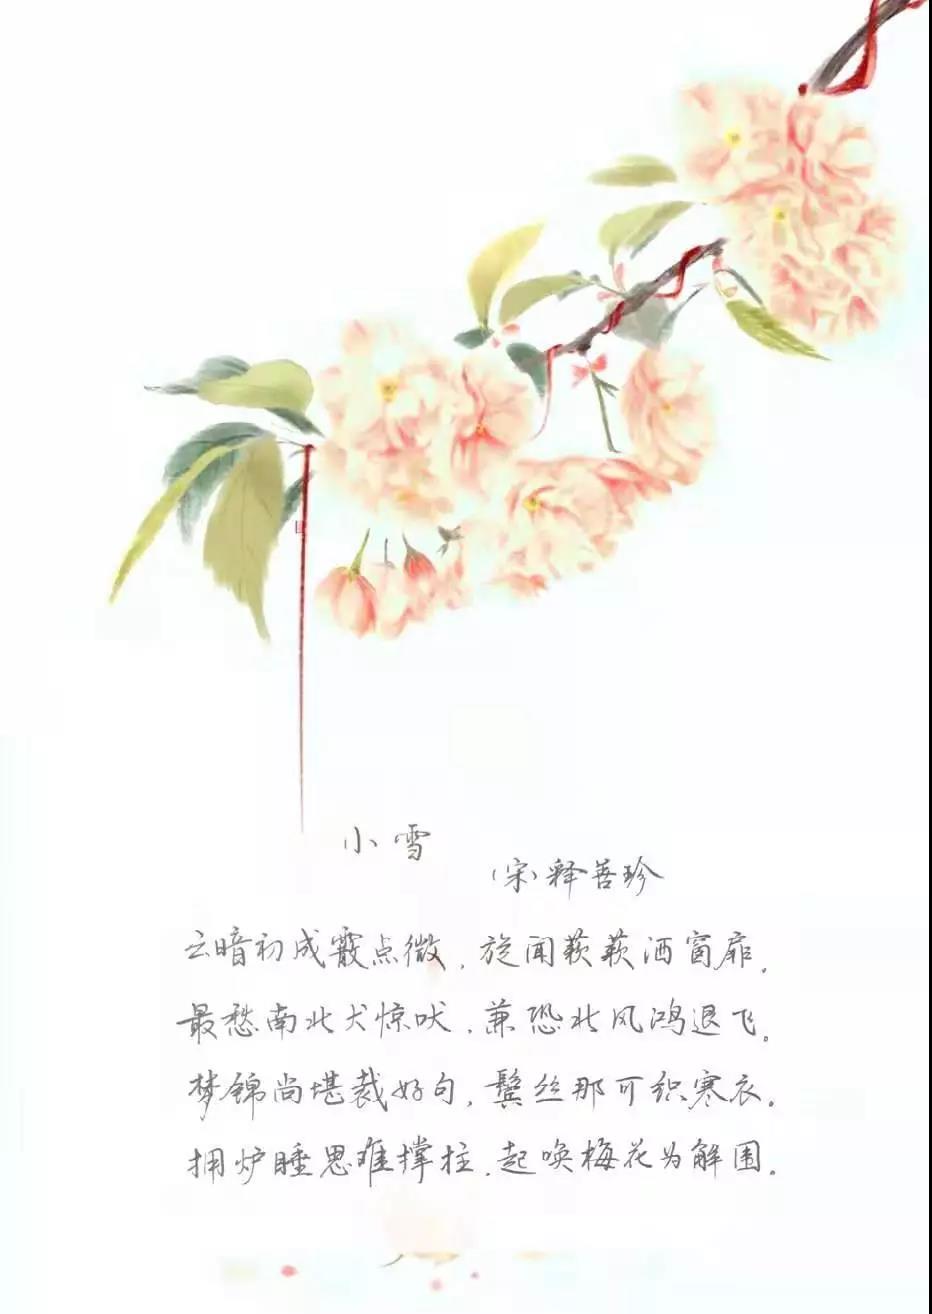 小雪
（宋）释善珍
云暗初成霰点微，旋闻蔌蔌洒窗扉。
最愁南北犬惊吠，兼恐北风鸿退飞。
梦锦尚堪裁好句，鬓丝那可织寒衣。
拥炉睡思难撑拄，起唤梅花为解围。